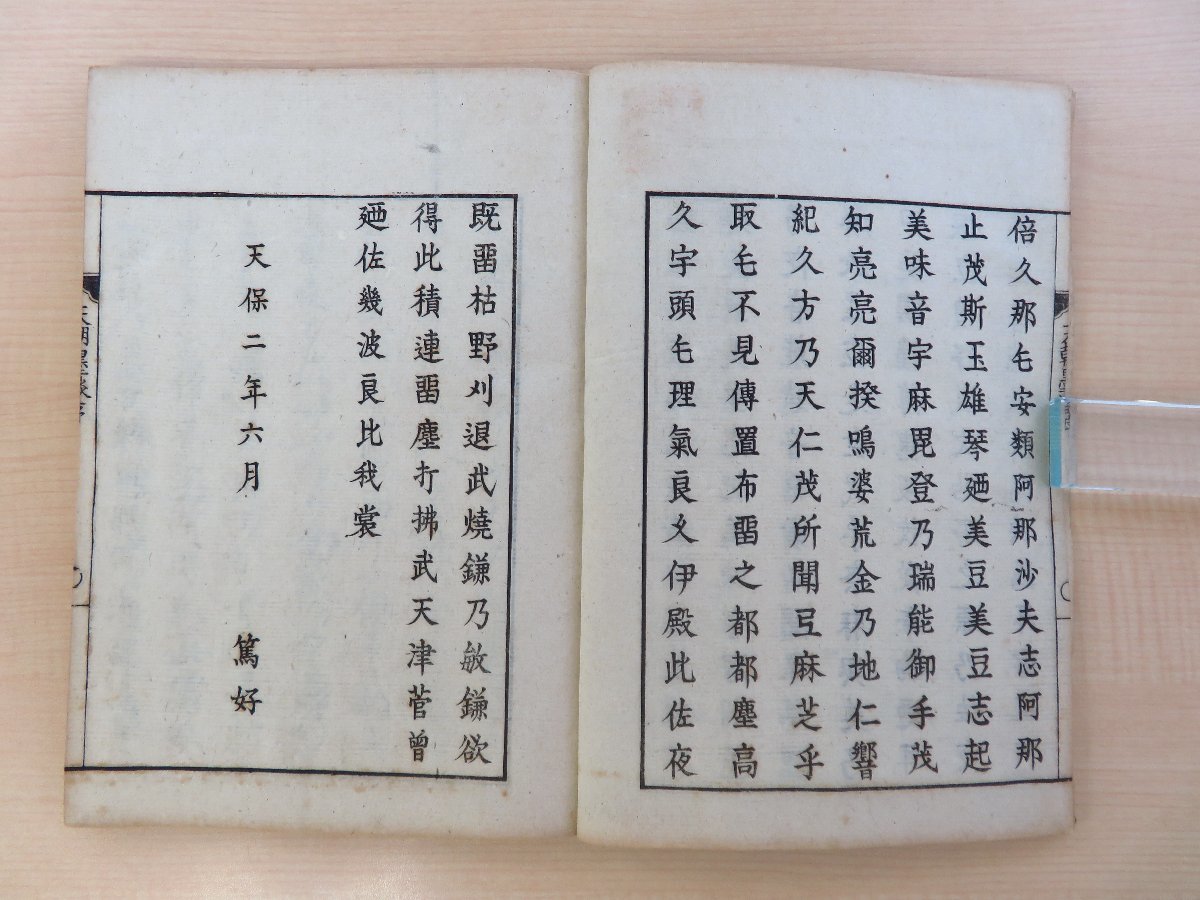 倍久那乇安類阿那沙夫志阿那
止茂斯玉雄琴廼美豆美豆志起
美味音宇麻毘登乃瑞能御手茂
知亮亮爾揆鳴婆荒金乃地仁響
紀久方乃天仁茂所聞弖麻芝乎
取乇不見傳置布畱之都都塵高
久宇頭乇理氣良久伊殿此佐夜
既畱枯野刈退武燒鎌乃敏鎌欲
得此積連畱塵打拂武天津菅曾
廼佐幾波良比我裳
天保二年六月
篤好